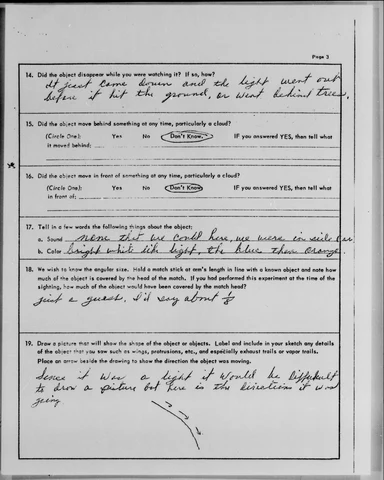 Page 3
14. Did the object disappear while you were watching it? If so, how?
It just came down and the light went out
before it hit the ground, or went behind trees.
15. Did the object move behind something at any time, particularly a cloud?
(Circle One): Yes No Don't Know. IF you answered YES, then tell what
it moved behind:
16. Did the object move in front of something at any time, particularly a cloud?
(Circle One): Yes No Don't Know. IF you answered YES, then tell what
in front of:
17. Tell in a few words the following things about the object:
a. Sound none that we could here, we were in side car
b. Color bright white like light, the blue then orange
18. We wish to know the angular size. Hold a match stick at arm's length in line with a known object and note how
much of the object is covered by the head of the match. If you had performed this experiment at the time of the
sighting, how much of the object would have been covered by the match head?
Just a guess. I'd say about
19. Draw a picture that will show the shape of the object or objects. Label and include in your sketch any details
of the object that you saw such as wings, protrusions, etc., and especially exhaust trails or vapor trails.
Place an arrow beside the drawing to show the direction the object was moving.
Since it was a light it would be difficult
to drow a picture but here is the direction it was
going